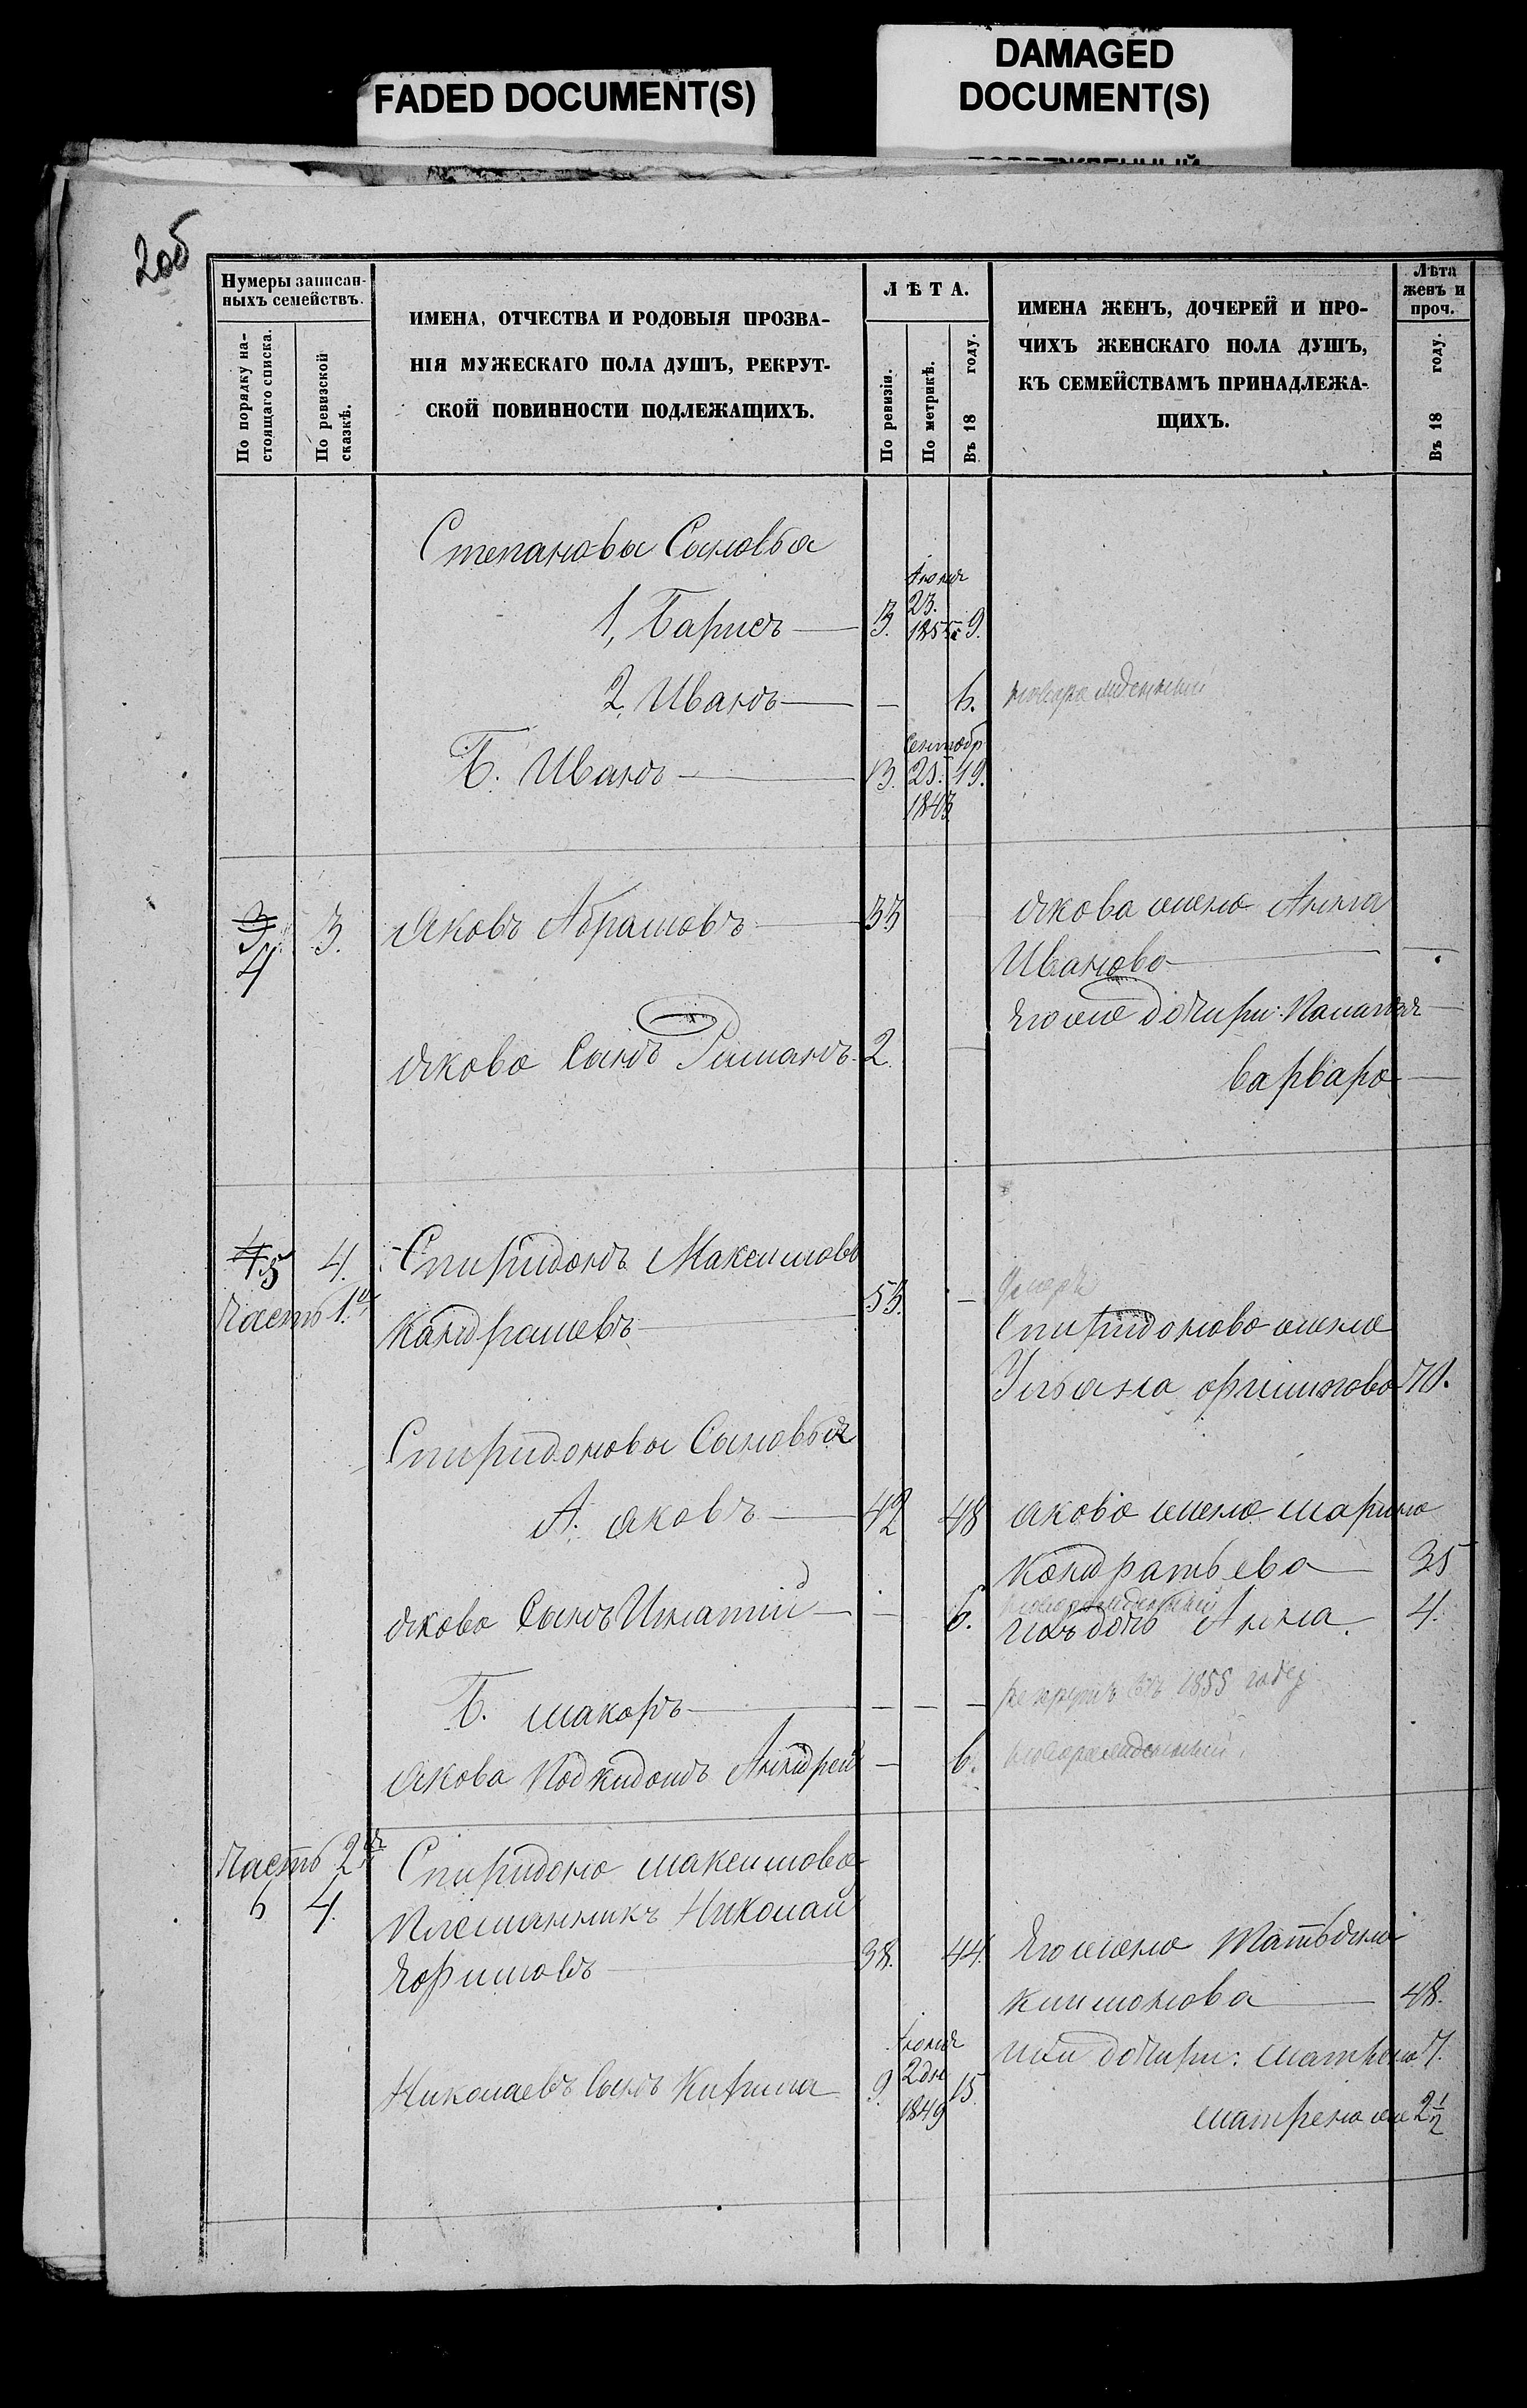 FADED DOCUMENT(S)
DAMAGED
DOCUMENT(S)
2об
Нумеры записан-
ныхъ семействъ.
По порядку на-
стоящаго списка.
По ревизской
сказкѣ.
ИМЕНА, ОТЧЕСТВА И РОДОВЫЯ ПРОЗВА-
НІЯ МУЖЕСКАГО ПОЛА ДУШЪ, РЕКРУТ-
СКОЙ ПОВИННОСТИ ПОДЛЕЖАЩИХЪ.
ЛѢТА.
По ревизіи.
По метрикѣ.
Въ 18 году.
ИМЕНА ЖЕНЪ, ДОЧЕРЕЙ И ПРО-
ЧИХЪ ЖЕНСКАГО ПОЛА ДУШЪ,
КЪ СЕМЕЙСТВАМЪ ПРИНАДЛЕЖА-
ЩИХЪ.
Лѣта
женъ и
проч.
Въ 18 году.
Степановы Сыновья
1, Барисъ — 3. Июня 23. 1855 9.
2, Иванъ — — 6. новорожденный
Б. Иванъ — 13. Сентябр 25. 1843 19.
3 4 3. Яковъ Абрамовъ — 33 Якова жена Анна
Иванова —
Его же дочири: Палагея —
Якова Сынъ Романъ 2 —
варвара —
4 5 4. Спиридонъ Максимовъ
Часть 1я
Кандрашевъ — 53. — Умеръ
Спиридонова жена
Ульяна 70.
Спиридоновы Сыновья
А. яковъ — 42 48 якова жена марина
Кондратьева — 35
Якова Сынъ Игнатій — — 6. новорожденный
ихъ дочь Анна. 4.
Б. макаръ — — — — рекрутъ въ 1855 году
Якова Подкидошъ Андрей — 6. новорожденный.
Часть 2я Спиридона максимова
6 4. Племянникъ Николай
Ефимовъ — 38. 44. Его жена Татьяна
— 48.
Николаевъ Сынъ Кирила 9. Июня 2дн 1849 15 ихъ дочири: матрена 7.
матрена же 2 1/2